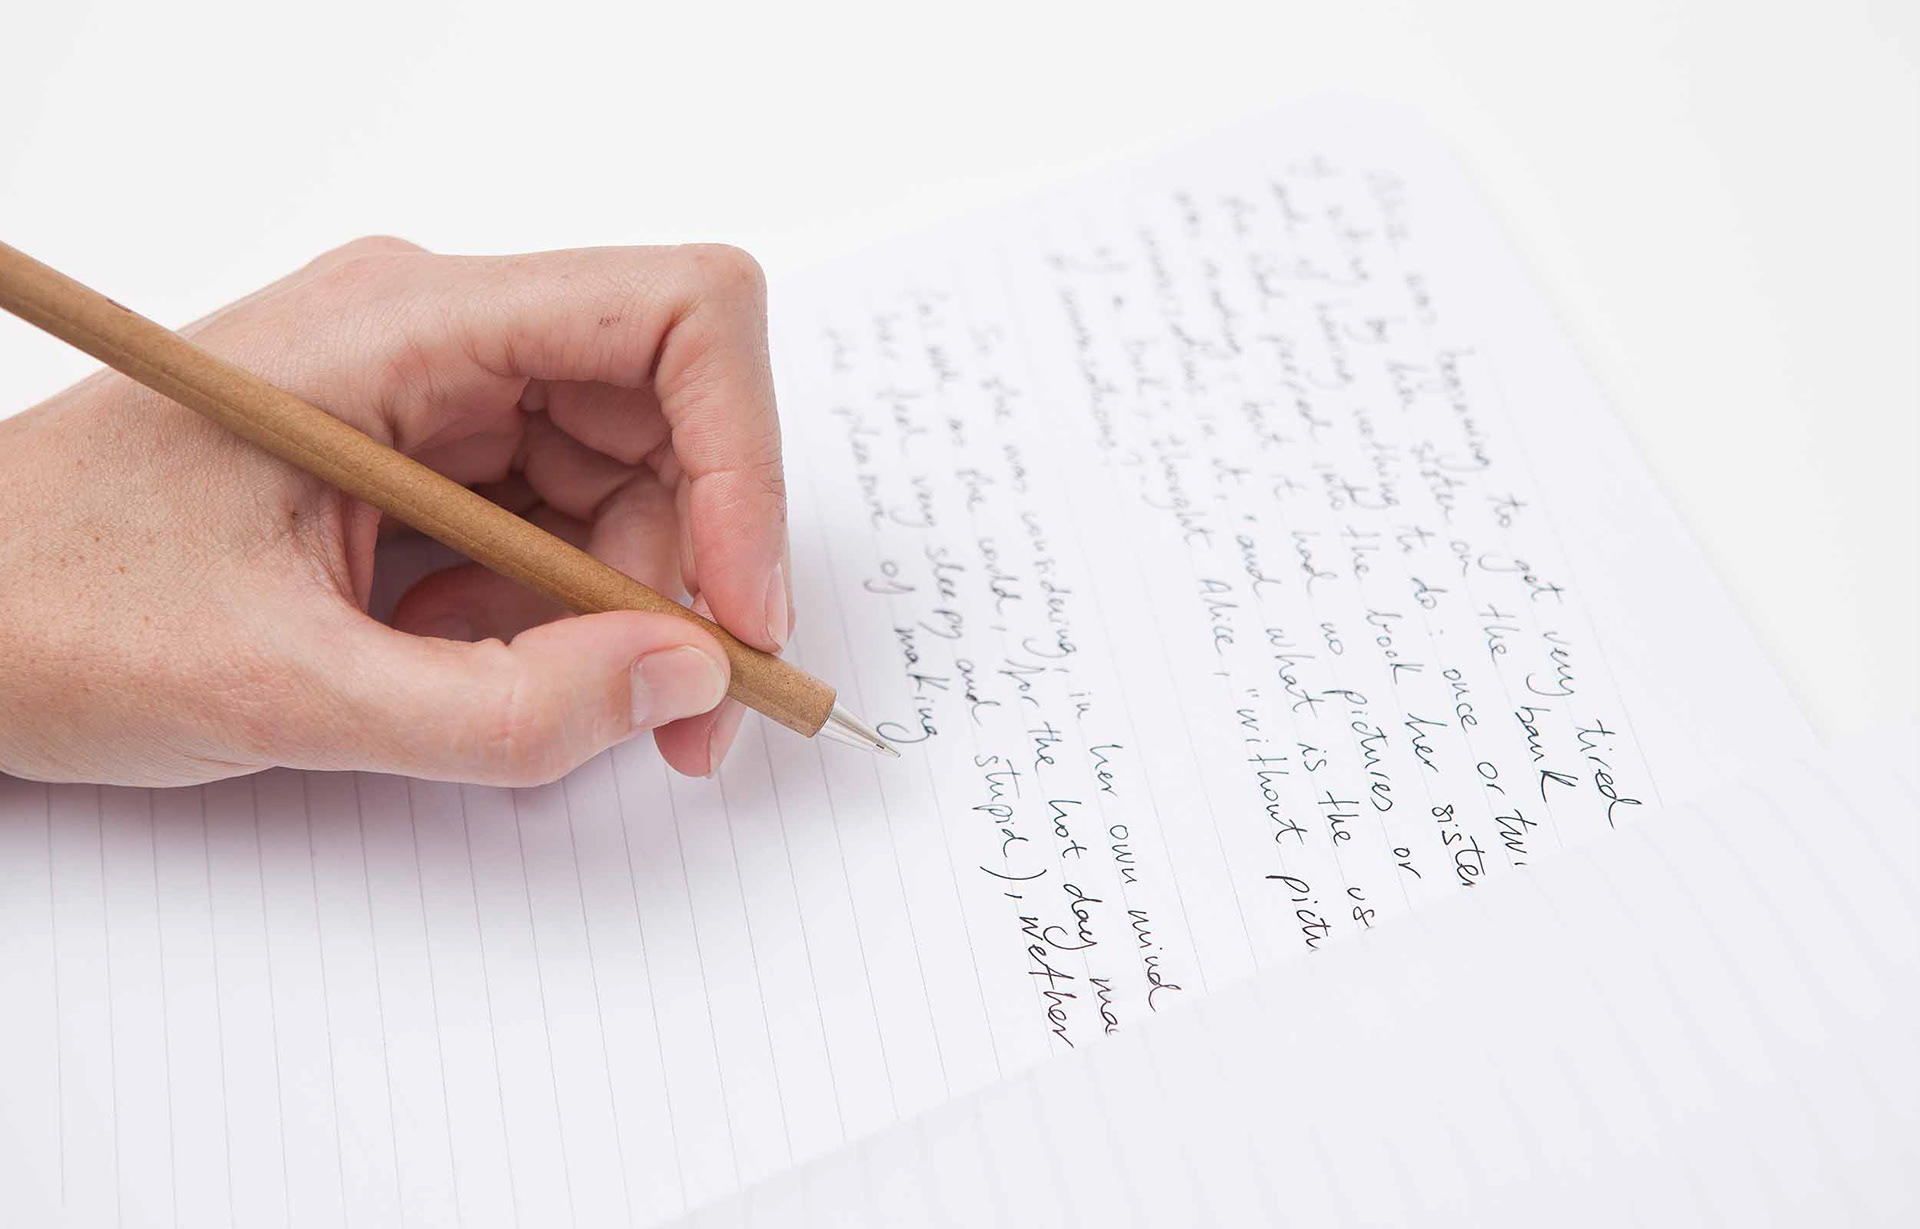 Alice was beginning to get very tired
of sitting by her sister on the bank
and of having nothing to do: once or tw
she had peeped into the book her sister
was reading, but it had no pictures or
conversations in it, 'and what is the us
of a book', thought Alice, "without pictu
conversations?
So she was considering, in her own mind
(as well as she could, for the hot day ma
her feel very sleepy and stupid), wether
the pleasure of making